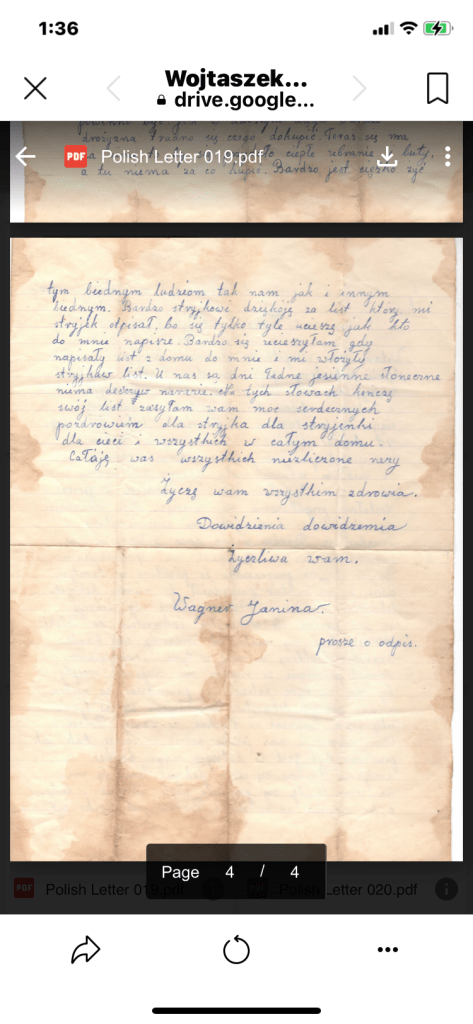 1:36
Wojtaszek...
drive.google...
drożyzna trudno się czego dokupić. Teraz się ma
Polish Letter 019.pdf
ciepłe ubranie i buty,
a tu niema za co kupić. Bardzo jest ciężko żyć
tym biednym ludziom tak nam jak i innym
biednym. Bardzo stryjkowi dziękuję za list który mi
stryjek odpisał, bo się tylko tyle ucieszę jak kto
do mnie napisze. Bardzo się ucieszyłam gdy
napisały list z domu do mnie i mi włożyły
stryjków list. U nas są dni ładne jesienne słoneczne
niema deszczyw narazie. Na tych słowach kończę
swój list zasyłam wam moc serdecznych
pozdrowiiń dla stryjka dla stryjenki
dla cieci i wszystkich w całym domu.
Całuję was wszystkich niezliczone razy
Życzę wam wszystkim zdrowia.
Dowidzienia dowidzenia
Życzliwa wam.
Wagner Janina.
prosze o odpis.
Page 4 / 4
Polish Letter 019.pdf
Polish Letter 020.pdf